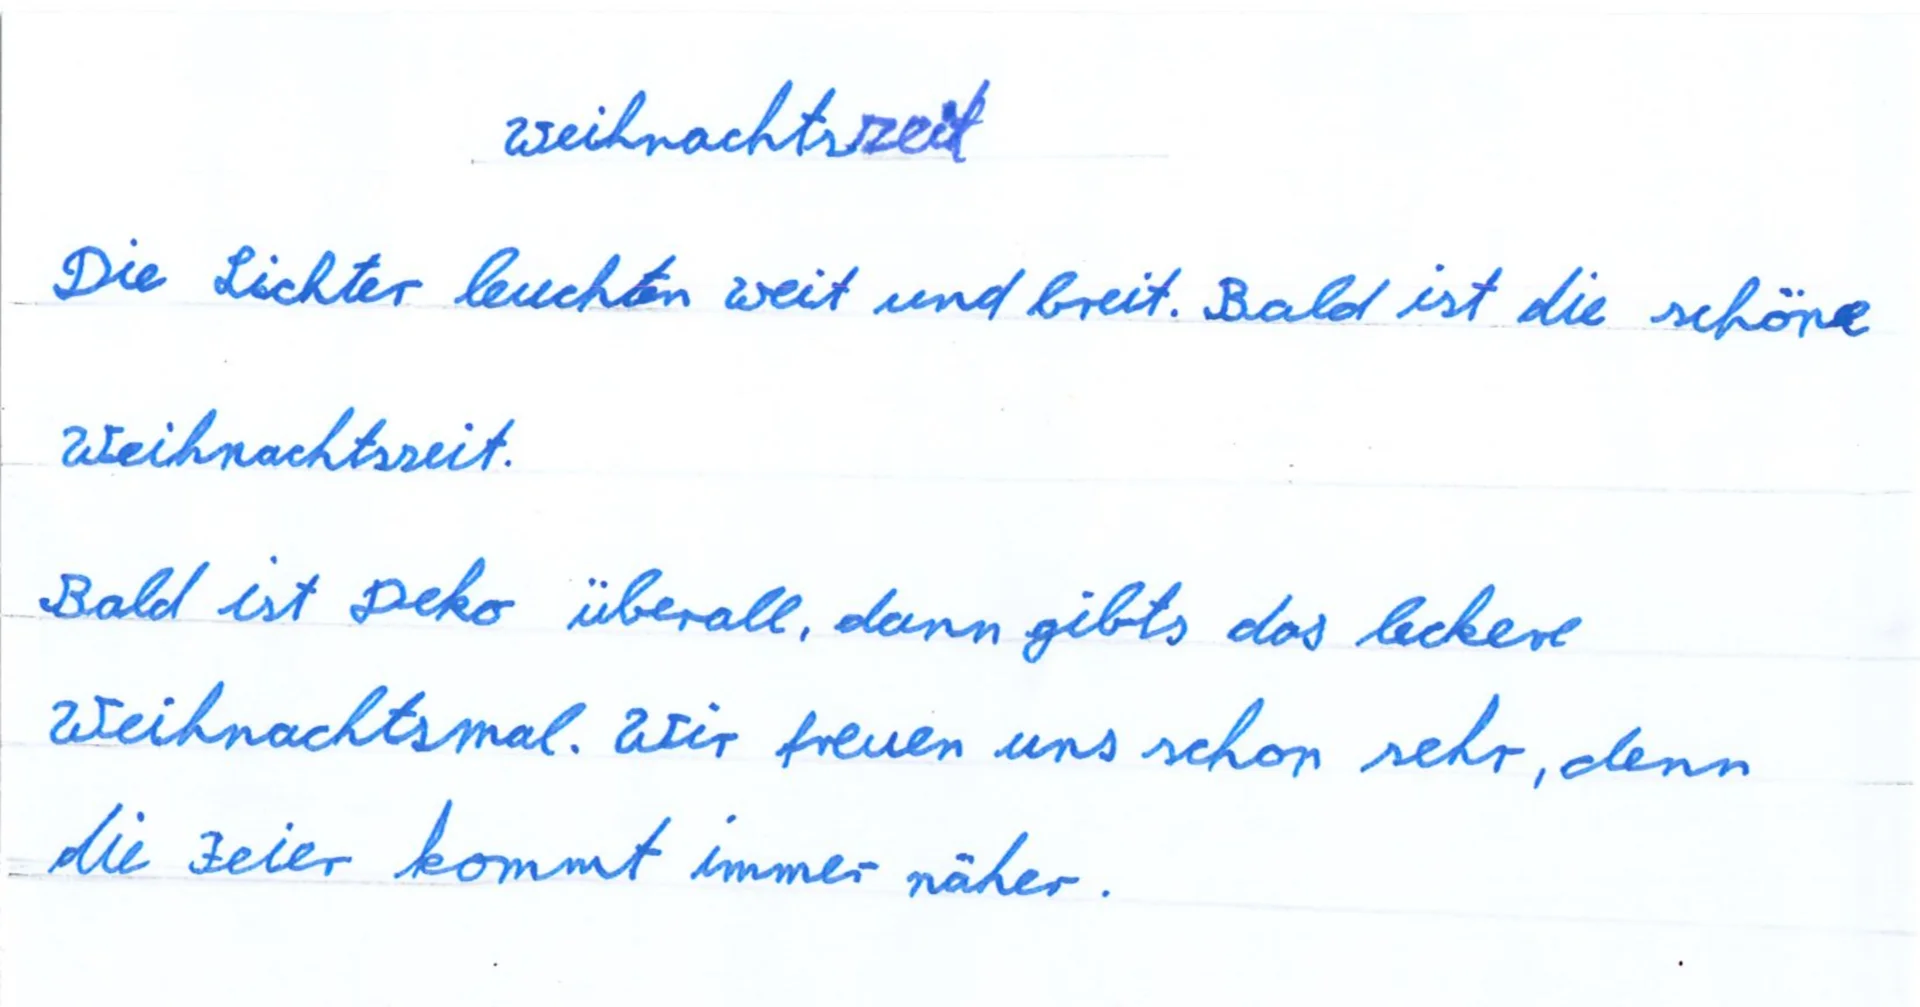 Weihnachtszeit
Die Lichter leuchten weit und breit. Bald ist die schöne
Weihnachtszeit.
Bald ist Deko überall, dann gibts das leckere
Weihnachtsmal. Wir freuen uns schon sehr, denn
die Feier kommt immer näher.